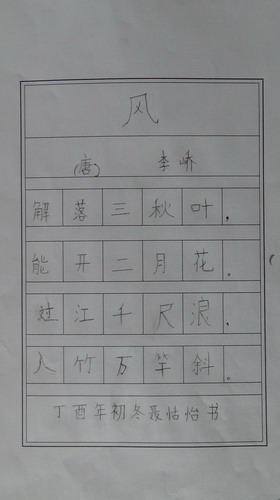 风
(唐) 李峤
解落三秋叶，
能开二月花。
过江千尺浪，
入竹万竿斜。
丁酉年初冬聂怡怡书